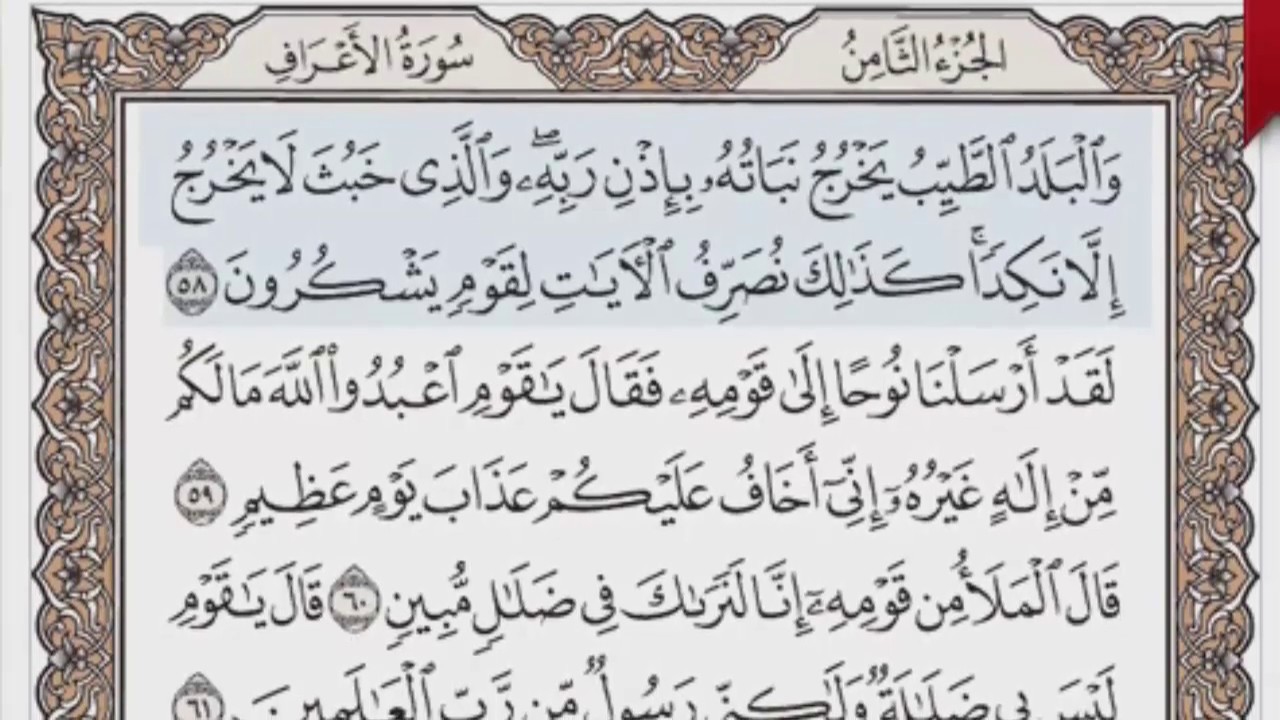 الجُزْءُ الثَّامِنُ
سُورَةُ الأَعْرَافِ
وَٱلْبَلَدُ ٱلطَّيِّبُ يَخْرُجُ نَبَاتُهُۥ بِإِذْنِ رَبِّهِۦۖ وَٱلَّذِى خَبُثَ لَا يَخْرُجُ
إِلَّا نَكِدًاۚ كَذَٰلِكَ نُصَرِّفُ ٱلْأَيَـٰتِ لِقَوْمٍ يَشْكُرُونَ ٥٨
لَقَدْ أَرْسَلْنَا نُوحًا إِلَىٰ قَوْمِهِۦ فَقَالَ يَـٰقَوْمِ ٱعْبُدُوا۟ ٱللَّهَ مَا لَكُم
مِّنْ إِلَـٰهٍ غَيْرُهُۥٓ إِنِّىٓ أَخَافُ عَلَيْكُمْ عَذَابَ يَوْمٍ عَظِيمٍ ٥٩
قَالَ ٱلْمَلَأُ مِن قَوْمِهِۦٓ إِنَّا لَنَرَىٰكَ فِى ضَلَـٰلٍ مُّبِينٍ ٦٠ قَالَ يَـٰقَوْمِ
لَيْسَ بِى ضَلَـٰلَةٌ وَلَـٰكِنِّى رَسُولٌ مِّن رَّبِّ ٱلْعَـٰلَمِينَ ٦١